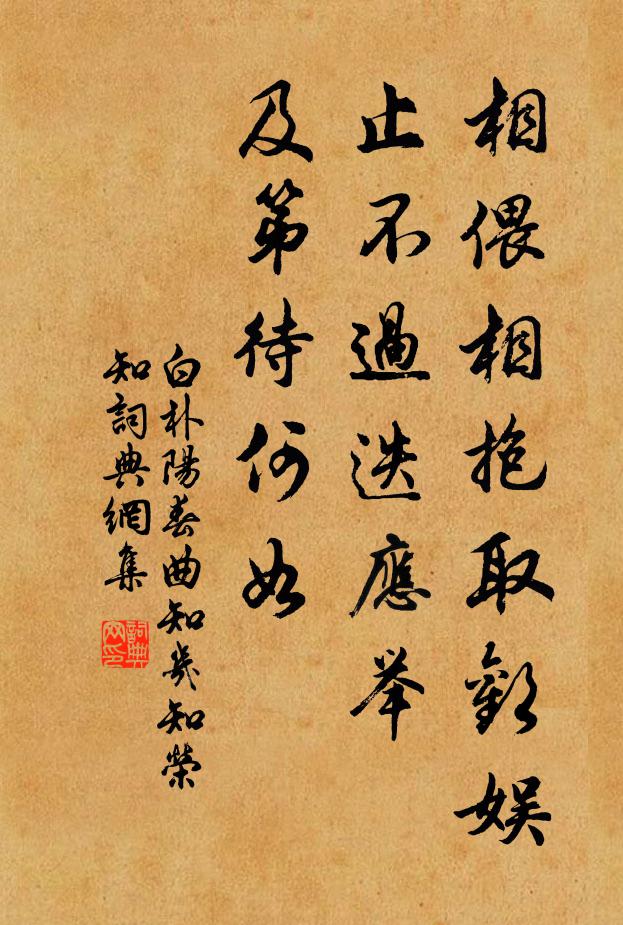 相偎相抱取歡娱
止不過迭應举
及第待何如
白朴陽春曲知幾知榮
知詞典網集
詞典網印